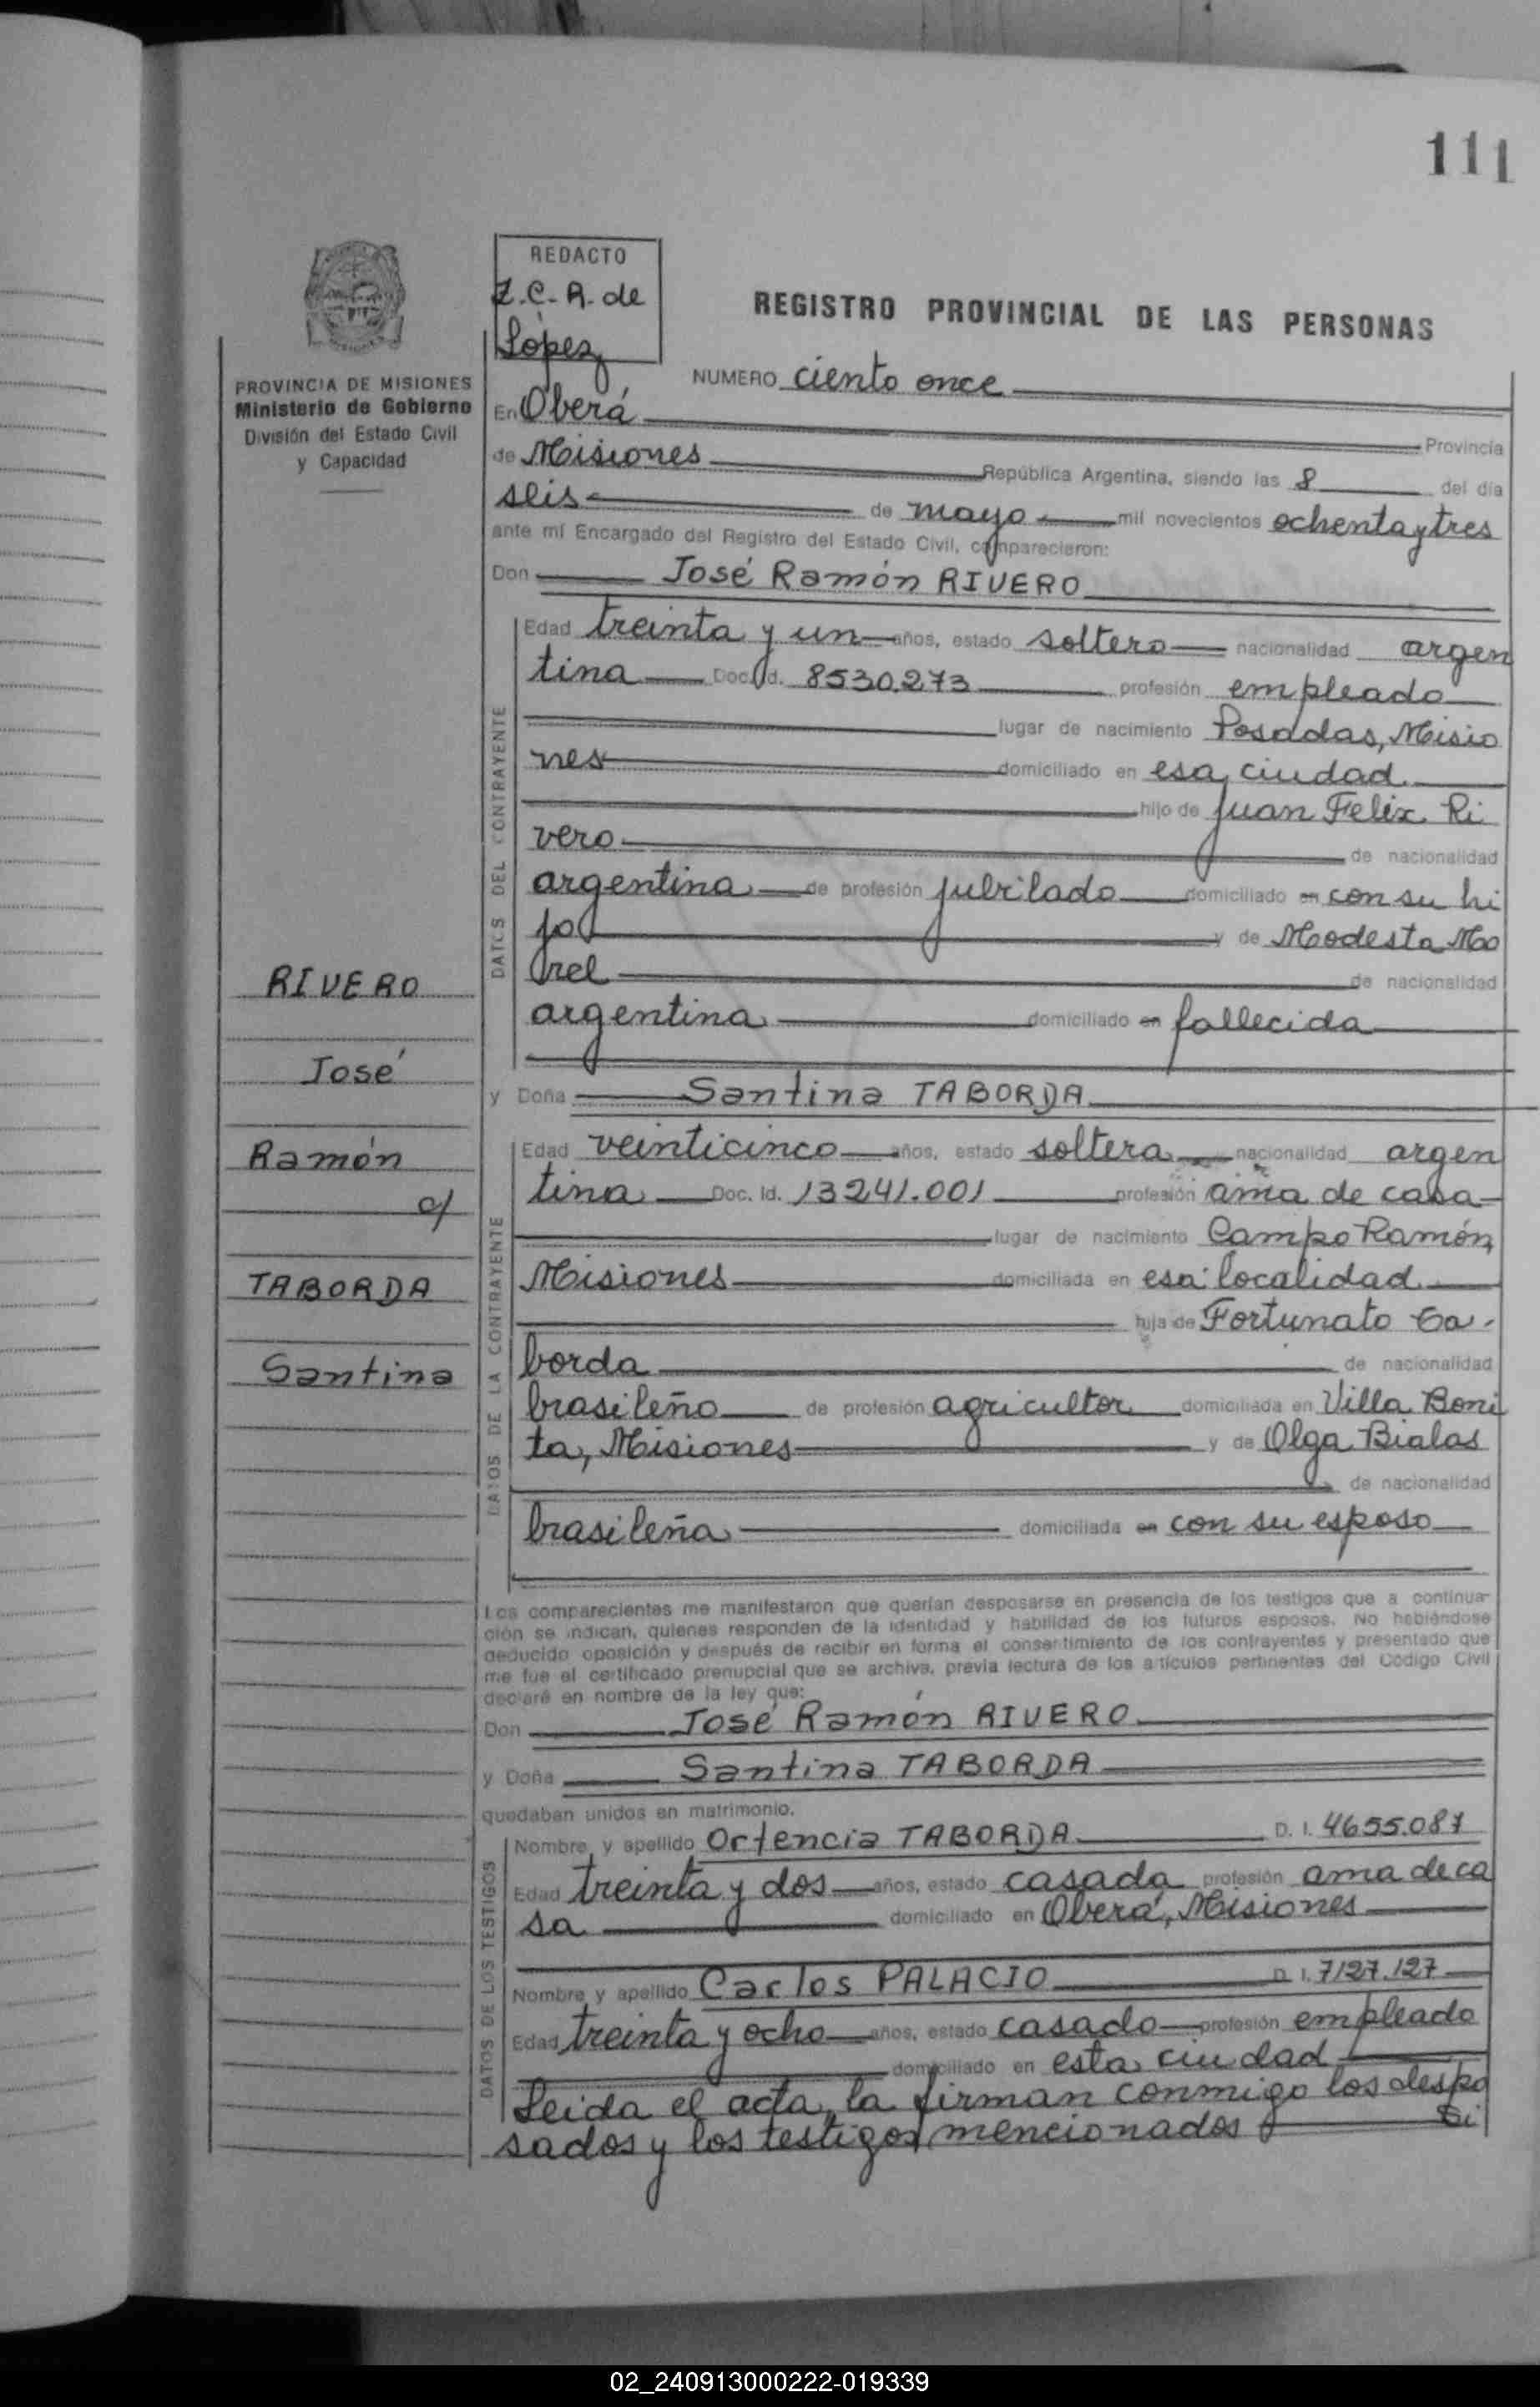 111
REDACTO
Z.C.A. de
López
REGISTRO PROVINCIAL DE LAS PERSONAS
PROVINCIA DE MISIONES
Ministerio de Gobierno
División del Estado Civil
y Capacidad
NUMERO ciento once
En Oberá Provincia
de Misiones República Argentina, siendo las 8 del día
seis de mayo mil novecientos ochenta y tres
ante mí Encargado del Registro del Estado Civil, comparecieron:
Don José Ramón RIVERO
DATOS DEL CONTRAYENTE
Edad treinta y un años, estado soltero nacionalidad argen
tina Doc. Id. 8530.273 profesión empleado
lugar de nacimiento Posadas, Misio
nes domiciliado en esa ciudad
hijo de Juan Felix Ri
vero de nacionalidad
argentina de profesión jubilado domiciliado en con su hi
jo y de Modesta Mo
rel de nacionalidad
argentina domiciliado en fallecida
RIVERO
José
Ramón
c/
TABORDA
Santina
y Doña Santina TABORDA
DATOS DE LA CONTRAYENTE
Edad veinticinco años, estado soltera nacionalidad argen
tina Doc. Id. 13241.001 profesión ama de casa
lugar de nacimiento Campo Ramón,
Misiones domiciliada en esa localidad
hija de Fortunato Ta-
borda de nacionalidad
brasileño de profesión agricultor domiciliada en Villa Boni
ta, Misiones y de Olga Bialas
de nacionalidad
brasileña domiciliada en con su esposo
Los comparecientes me manifestaron que querían desposarse en presencia de los testigos que a continua-
ción se indican, quienes responden de la identidad y habilidad de los futuros esposos. No habiéndose
deducido oposición y después de recibir en forma el consentimiento de los contrayentes y presentado que
me fue el certificado prenupcial que se archiva, previa lectura de los artículos pertinentes del Código Civil
declaré en nombre de la ley que:
Don José Ramón RIVERO
y Doña Santina TABORDA
quedaban unidos en matrimonio.
DATOS DE LOS TESTIGOS
Nombre y apellido Ortencia TABORDA D. I. 4655.087
Edad treinta y dos años, estado casada profesión ama de ca
sa domiciliado en Oberá, Misiones
Nombre y apellido Carlos PALACIO D. I. 7127.127
Edad treinta y ocho años, estado casado profesión empleado
domiciliado en esta ciudad
Leida el acta, la firman conmigo los despo
sados y los testigos mencionados
02_240913000222-019339